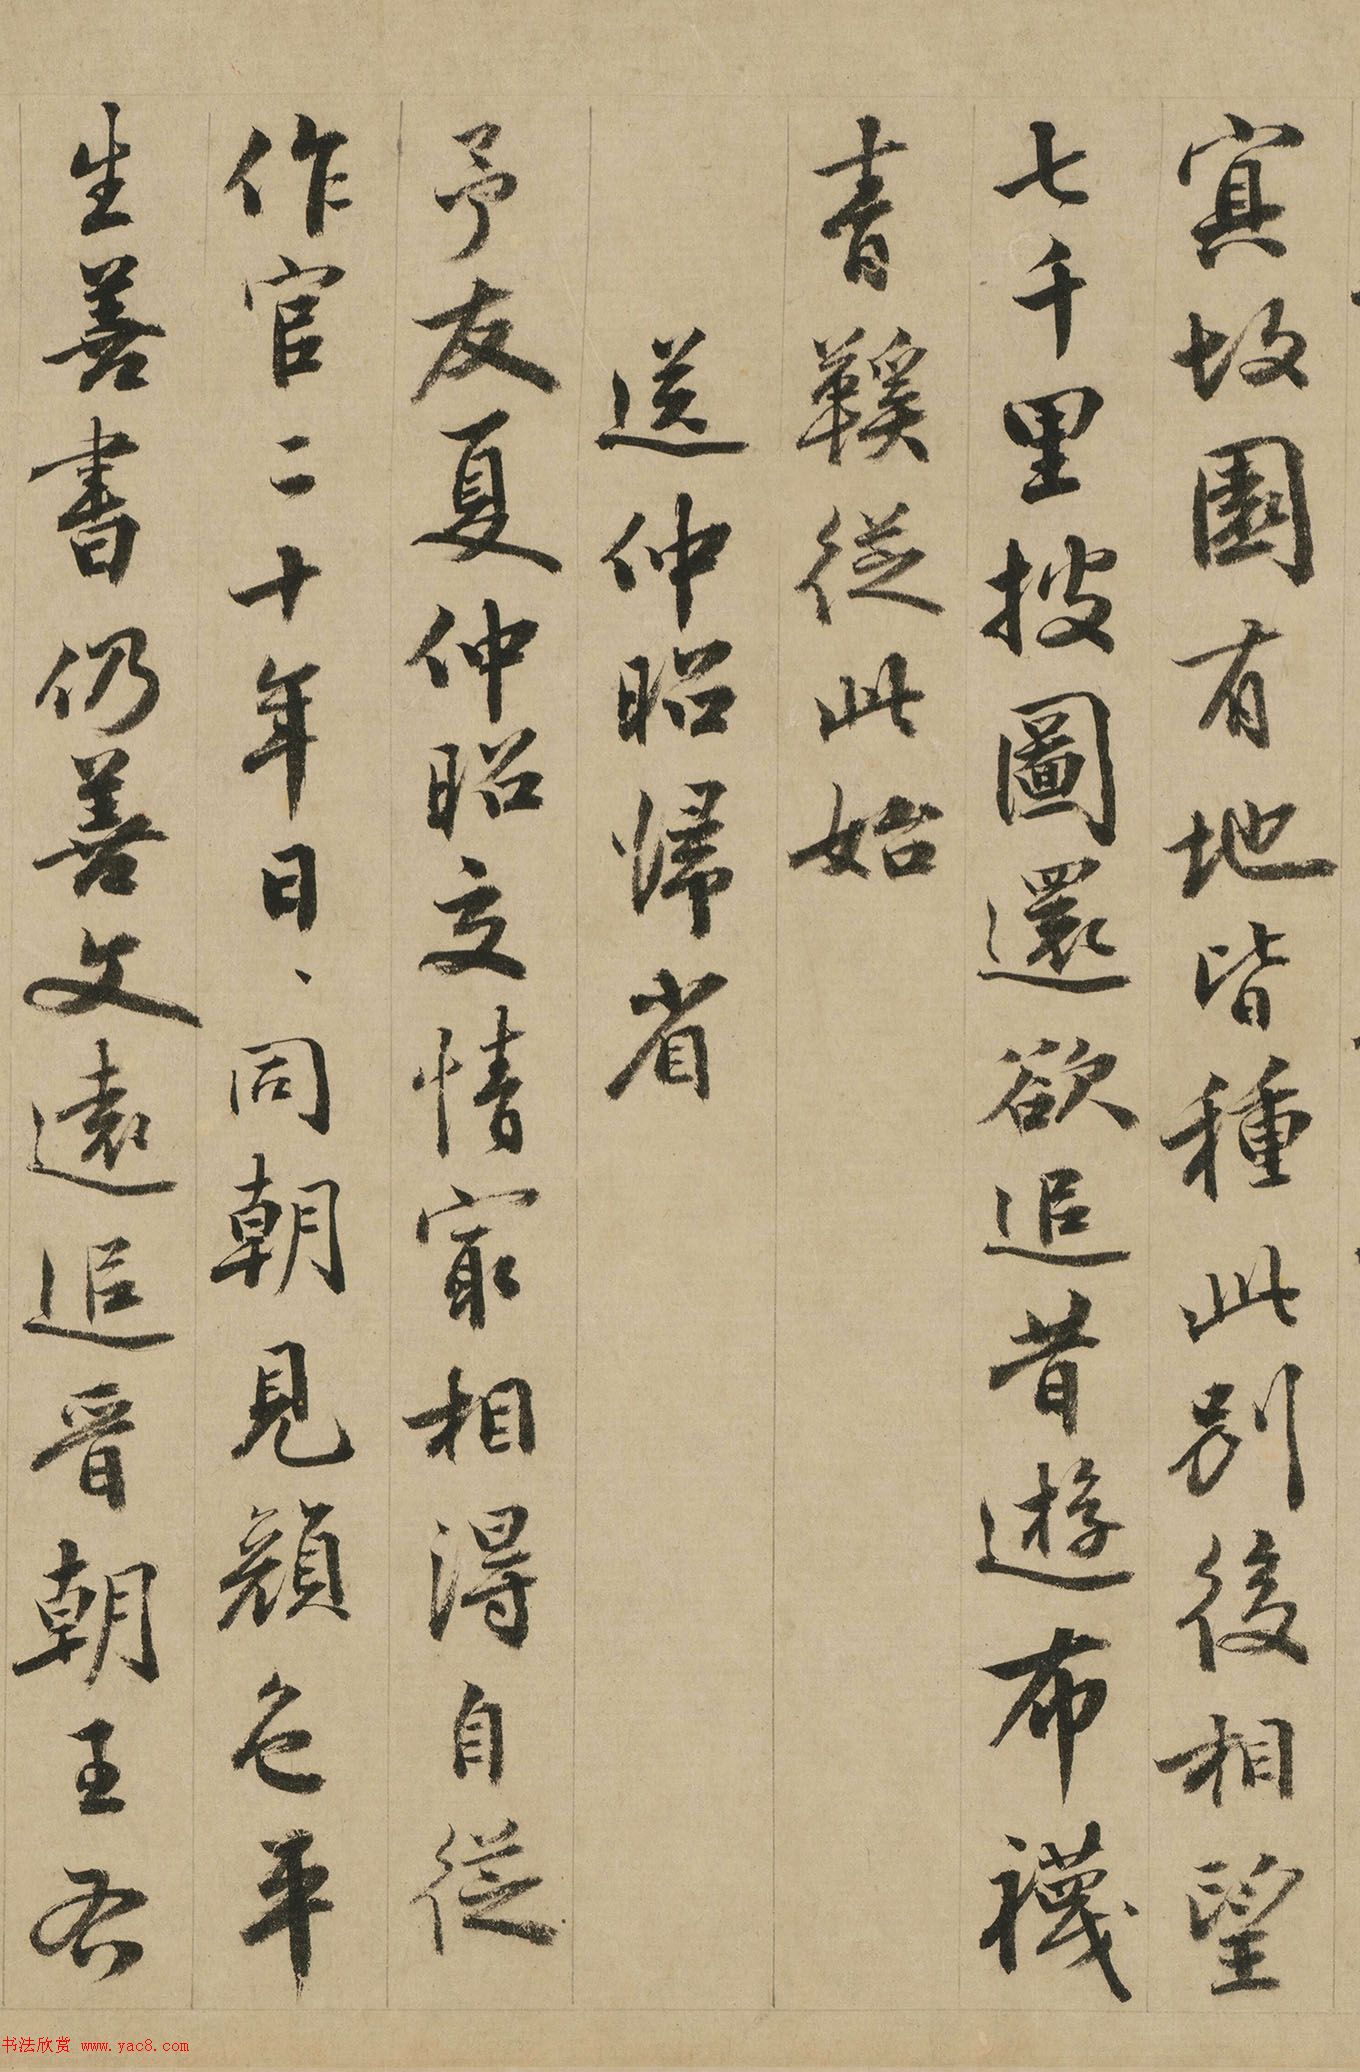 寘故園有地皆種此別後相望
七千里披圖還欲追昔遊布襪
青鞵從此始
送仲昭歸省
予友夏仲昭交情寂相得自從
作官二十年日、同朝見顏色平
生善書仍善文遠追晉朝王右
书法欣赏 www.yac8.com